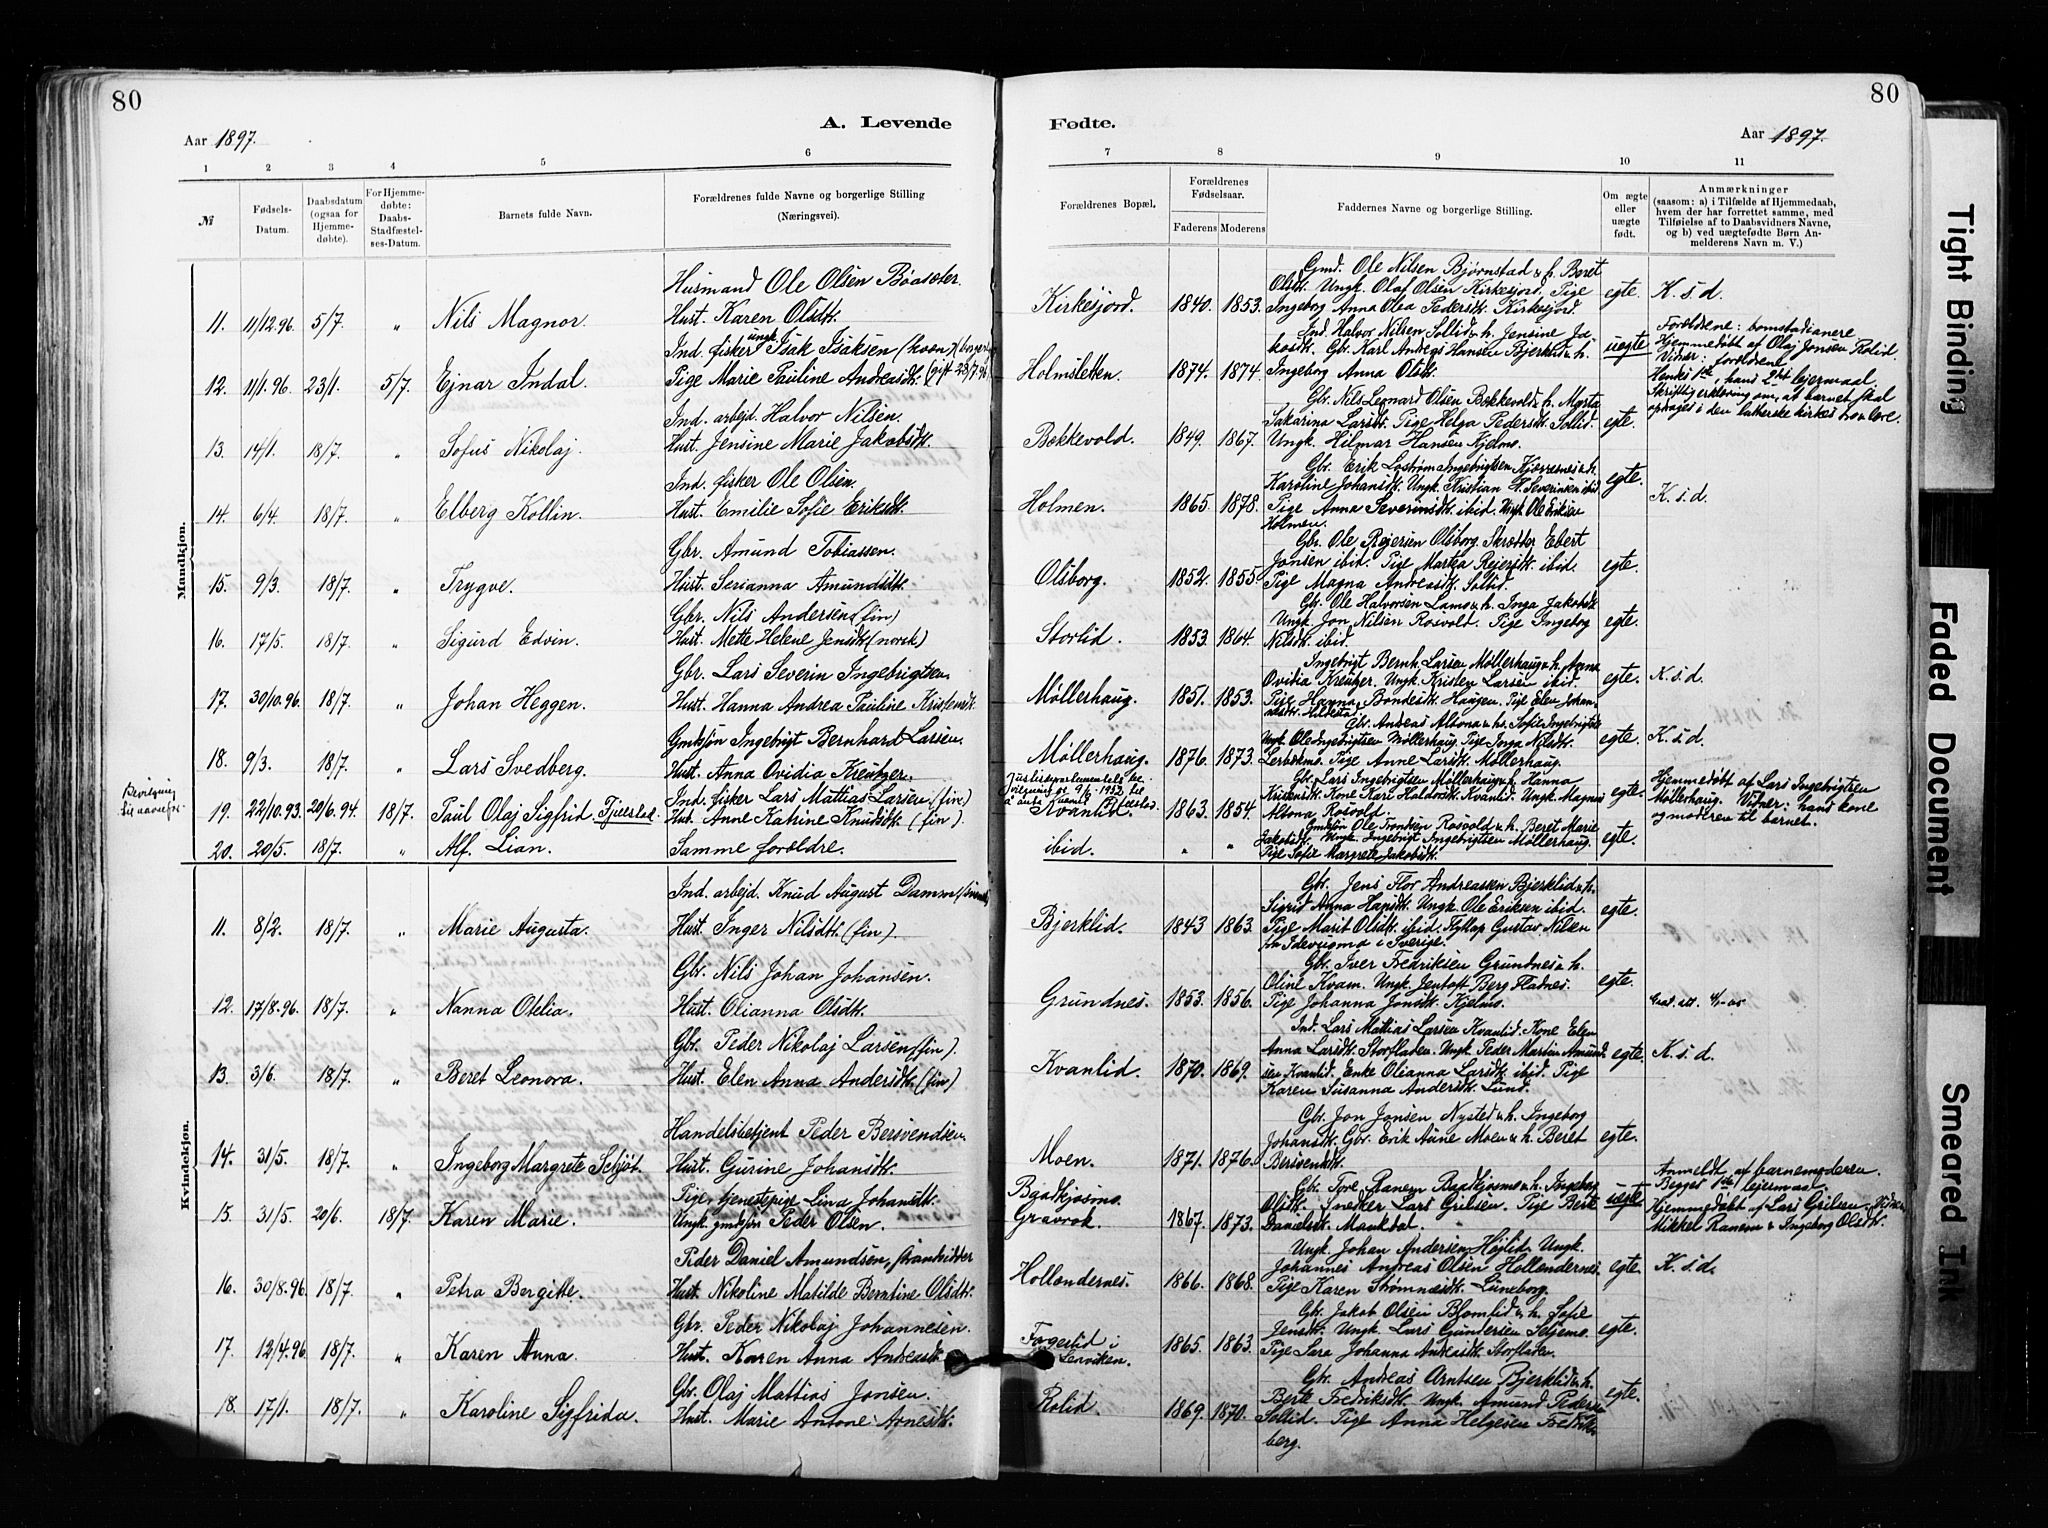 80
80
A. Levende
Fødte.
Aar 1897.
Aar 1897.
1 2 3 4 5 6 7 8 9 10 11
№
Fødsels-Datum.
Daabsdatum (ogsaa for Hjemme-døbte).
For Hjemme-døbte: Daabs-Stadfæstel-ses-Datum.
Barnets fulde Navn.
Forældrenes fulde Navne og borgerlige Stilling (Næringsvei).
Forældrenes Bopæl.
Forældrenes Fødselsaar.
Faderens Moderens
Faddernes Navne og borgerlige Stilling.
Om ægte eller uægte født.
Anmærkninger
(saasom: a) i Tilfælde af Hjemmedaab,
hvem der har forrettet samme, med
Tilføielse af to Daabsvidners Navne,
og b) ved uægtefødte Børn An-
melderens Navn m. V.)
Mandkjøn.
Husmand Ole Olsen Bøasæter.
Gmd. Ole Nilsen Bjørnstad & h. Beret
Olsdt. Ungk. Olaf Olsen Kirkesjord. Pige
11. 11/12.96. 5/7. " Nils Magnor. Hust. Karen Olsdt. Kirkesjord. 1840. 1853. Ingeborg Anna Olea Pedersdt. Kirkesjord. egte. K.s.d.
Ind. fisker ungk. Isak Isaksen (kvæn)
Ind. Halvor Nilsen Sollid & h. Jensine Ja-
kobsdt. Gbr. Karl Andreas Hansen Bjerklid & h.
12. 11/1.96. 23/1. 5/7. Ejnar Indal. Pige Marie Pauline Andreasdt. (gift 23/7.96 Holmsletten. 1874. 1874. Ingeborg Anna Olsdt. uegte
Forældrene:
Hjemmedøbt af Olaj Jonsen Rolid.
Vidner: forældrene.
Hendes 1ste, hans 2det lejermaal.
Skriftlig erklæring om, at barnet skal
opdrages i den lutherske kirkes
Ind. arbejd. Halvor Nilsen.
Gbr. Nils Leonard Olsen Bakkevold & h. Marta
Sakarina Larsdt. Pige Helga Pedersdt. Sollid.
13. 14/1. 18/7. " Sofus Nikolaj. Hust. Jensine Marie Jakobsdt. Bakkevold. 1849. 1867. Ungk. Hilmar Hansen Kjelmo. egte.
Ind. fisker Ole Olsen.
Gbr. Erik Lostrøm Ingebrigtsen Kjærresnes & h.
Karoline Johansdt. Ungk. Kristian A. Severinsen ibid
14. 6/4. 18/7. " Elberg Kollin. Hust. Emilie Sofie Eriksdt. Holmen. 1865. 1878. Pige Anna Severinsdt. ibid. Ungk. Ole Eriksen egte. K.s.d.
Holmen.
Gbr. Amund Tobiassen.
Gbr. Ole Rejersen Olsborg. Skrædder Ebert
Jonsen ibid. Pige Martea Rejersdt. ibid.
15. 9/3. 18/7. " Trygve. Hust. Serianna Amundsdt. Olsborg. 1852. 1855. Pige Magna Andreasdt. Sollid. egte.
Gbr. Nils Andersen (fin)
Gbr. Ole Halvorsen Lamo & h. Inga Jakobsdt
Ungk. Jon Nilsen Rosvold. Pige Ingeborg
16. 17/5. 18/7. " Sigurd Edvin. Hust. Mette Helene Jensdt. (norsk) Storlid. 1853. 1864. Nilsdt. ibid. egte.
Gbr. Lars Severin Ingebrigtsen.
Ingebrigt Bernh. Larsen Møllerhaug & h. Anna
Ovidia Kreutzer. Ungk. Kristen Larsen ibid.
17. 30/10.96. 18/7. " Johan Heggen. Hust. Hanna Andrea Pauline Kristensdt. Møllerhaug. 1851. 1853. Pige Hanna Bondesdt. Haugen. Pige Elen Johan- egte. K.s.d.
Gmdsjøn Ingebrigt Bernhard Larsen.
Gbr. Andreas Altona & h. Sofie Ingebrigtsdt
Ungk. Ole Ingebrigtsen Møllerhaug. Pige Inga Nilsdt.
18. 9/3. 18/7. " Lars Svedberg. Hust. Anna Ovidia Kreutzer. Møllerhaug. 1876. 1873. Lerbakmo. Pige Anne Larsdt. Møllerhaug. egte. K.s.d.
Bevilgning
til navnefr.
Justisdepartementets be-
vilgning av 9/6-1952 til
Ind. fisker Lars Mattias Larsen (fin)
Gbr. Lars Ingebrigtsen Møllerhaug & h. Hanna
Kristensdt. Kone Kari Halvorsdt. Kvanlid. Ungk. Magnus
19. 22/10.93. 20/6.94. 18/7. Paul Olaj Sigfrid Fjæstad. Hust. Anne Katrine Knudsdt. (fin). Kvanlid. 1863. 1854. Altona Rosvold. egte.
Hjemmedøbt af Lars Ingebrigtsen
Møllerhaug. Vidner: hans kone
og moderen til barnet.
Gmdsjøn Ole Trondsen Rosvold & h. Beret Marie
20. 20/5. 18/7. " Alf. Lian. Samme forældre. ibid. " " Jakobsdt. Ungk. Ingebrigt Ingebrigtsen Møllerhaug. egte.
Pige Sofie Margrete Jakobsdt.
Kvindekjøn.
Ind. arbejd. Knud August Damm
Gbr. Jens Flor Andreassen Bjerklid & h.
Sigrid Anna Hansdt. Ungk. Ole Eriksen ibid.
11. 8/2. 18/7. " Marie Augusta. Hust. Inger Nilsdt. (fin). Bjerklid. 1843 1863. Pige Marit Olsdt. ibid. Flytlap Gustav Nilsen egte.
i Sverige.
Gbr. Nils Johan Johansen.
Gbr. Iver Fredriksen Grundnes & h.
Oline Kvam. Ungk. Jentoft Berg Fladnes.
12. 17/8.96. 18/7. " Nanna Otelia. Hust. Olianna Olsdt. Grundnes. 1853. 1856. Pige Johanna Jonsdt. Kjelmo. egte.
Gbr. Peder Nikolaj Larsen (fin).
Ind. Lars Mattias Larsen Kvanlid. Kone Elen
Anna Larsdt. Storfladen. Ungk. Peder Martin Amund-
13. 3/6. 18/7. " Beret Leonora. Hust. Elen Anna Andersdt. (fin) Kvanlid. 1870. 1869. sen Kvanlid. Enke Olianna Larsdt. ibid. Pige egte. K.s.d.
Karen Susanna Andersdt. Lund.
Handelsbetjent Peder Bersvendsen.
Gbr. Jon Jonsen Nysted & h. Ingeborg
Johansdt. Gbr. Erik Aune Moen & h. Beret
14. 31/5. 18/7. " Ingeborg Margrete Schjøt. Hust. Gurine Johansdt. Moen. 1871. 1876. Bersvendsdt. egte.
Pige, tjenestepige Lina Johansdt.
Gbr. Tore Ranem Baatkjosmo & h. Ingeborg
Olsdt. Snedker Lars Grilsen. Pige Berit
15. 31/5. 20/6. 18/7. Karen Marie. Ungk. gmdsjøn Peder Olsen. Baatkjosmo. Gravrok. 1867. 1873. Danielsdt. Maukdal. uegte
Anmeldt af barnemoderen.
Begges 1ste lejermaal.
Hjemmedøbt af Lars Grilsen. Vidner
Mikkel Ranem & Ingeborg Olsdt.
Peder Daniel Amundsen, strandsidder
Ungk. Johan Andersen Højlid. Ungk.
Johannes Andreas Olsen Hollændernes.
16. 30/8.96. 18/7. " Petra Bergitte. Hust. Nikoline Matilde Berntine Olsdt. Hollændernes. 1866. 1868. Pige Karen Strømnæsdt. Luneborg. egte. K.s.d.
Gbr. Peder Nikolaj Johannesen.
Gbr. Jakob Olsen Blomlid & h. Sofie
Jensdt. Ungk. Lars Gundersen Seljemo.
17. 12/4.96. 18/7. " Karen Anna. Hust. Karen Anna Andreasdt. Fagerlid i 1865. 1863. Pige Sara Johanna Andreasdt. Storfladen. egte.
Gbr. Olaj Mattias Jonsen.
Gbr. Andreas Arntsen Bjerklid & h.
Berte Fredriksdt. Ungk. Amund Pedersen
18. 17/1. 18/7. " Karoline Sigfrida. Hust. Marie Antone Arnesdt. Rolid. 1869. 1870. Sollid. Pige Anna Helgesen Fredriks- egte.
berg.
Tight Binding
Faded Document
Smeared Ink